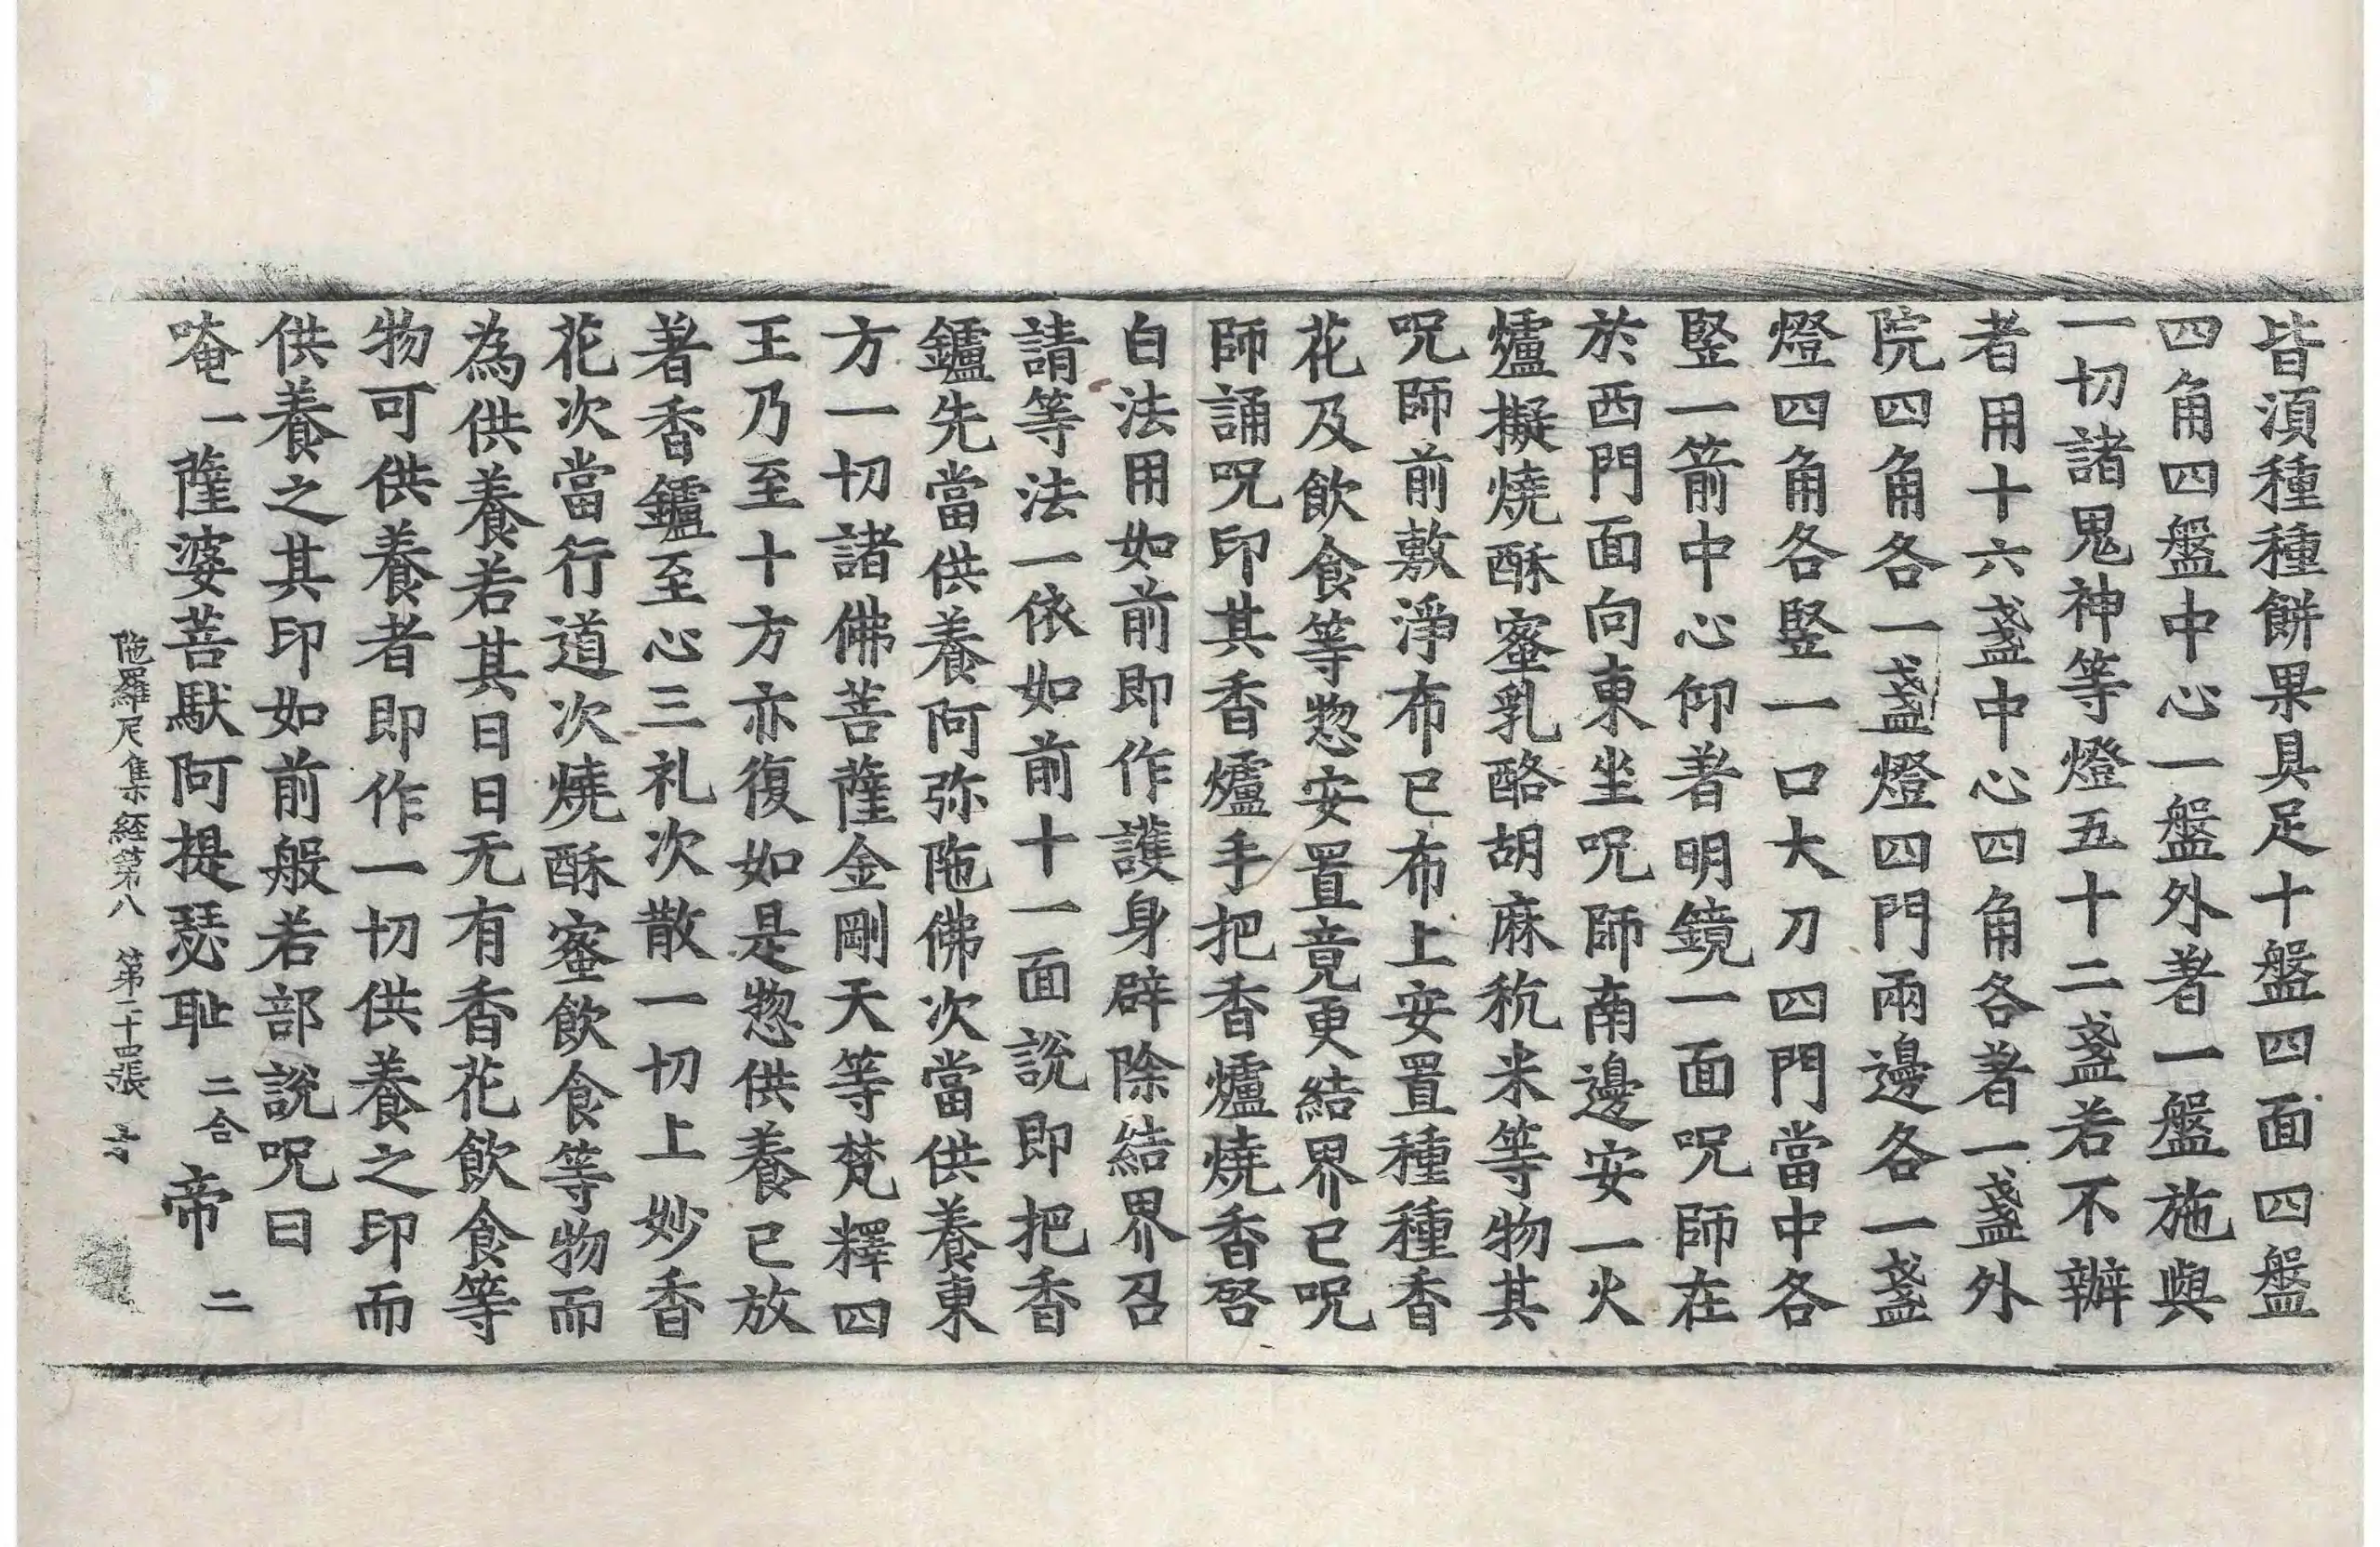 皆湏種種餅果具足十盤四面四盤
四角四盤中心一盤外著一盤施與
一切諸鬼神等燈五十二盞若不辦
者用十六盞中心四角各著一盞外
院四角各一盞燈四門兩邊各一盞
燈四角各竪一口大刀四門當中各
竪一箭中心仰著明鏡一面呪師在
於西門面向東坐呪師南邊安一火
爐擬燒酥蜜乳酪胡麻秔米等物其
呪師前敷淨布已布上安置種種香
花及飲食等惣安置竟更結界已呪
師誦呪印其香爐手把香爐燒香啓
白法用如前即作護身辟除結界召
請等法一依如前十一面說即把香
鑪先當供養阿弥陁佛次當供養東
方一切諸佛菩薩金剛天等梵釋四
王乃至十方亦復如是惣供養已放
著香鑪至心三礼次散一切上妙香
花次當行道次燒酥蜜飲食等物而
為供養若其日日无有香花飲食等
物可供養者即作一切供養之印而
供養之其印如前般若部說呪曰
唵一薩婆菩馱阿提瑟耻二合帝二
陁羅尼集経第八 第二十四張